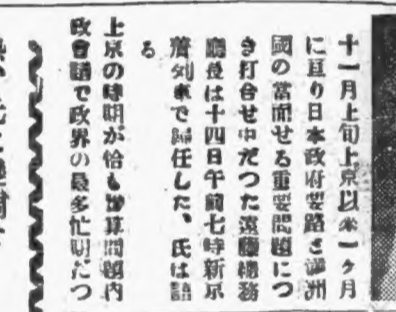 十一月上旬上京以來一ヶ月
に亘り日本政府要路と滿洲
國の當面せる重要問題につ
き打合せ中だつた遠藤總務
廳長は十四日午前七時新京
着列車で歸任した、氏は語
る
上京の時期が恰も豫算問題內
政會議で政界の最多忙期だつ